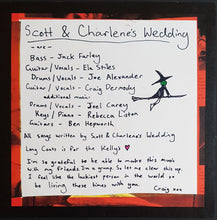 Scott & Charlene's Wedding
- are -
Bass - Jack Farley
Guitar / Vocals - Ela Stiles
Drums / Vocals - Joe Alexander
Guitar / Vocals - Craig Dermody
additional music:
Drums / Vocals - Joel Carey
Keys / Piano - Rebecca Liston
Guitars - Ben Hepworth
All songs written by Scott & Charlene's Wedding
Long Coats is for the Kellys
I'm so grateful to be able to make this music
with my friends in a group. So let me clear this up.
I feel like the luckiest person in the world to
be living these times with you.
Craig xox